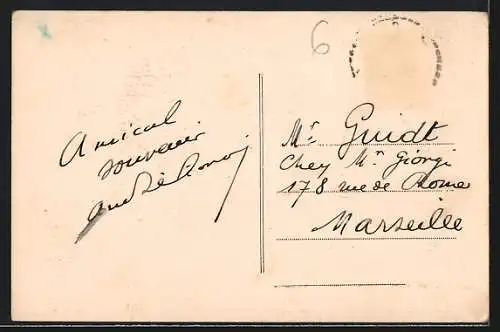 6
Amical
souvenir
André
Mr Guidt
Chez Mr Giorgi
178 rue de Rome
Marseille